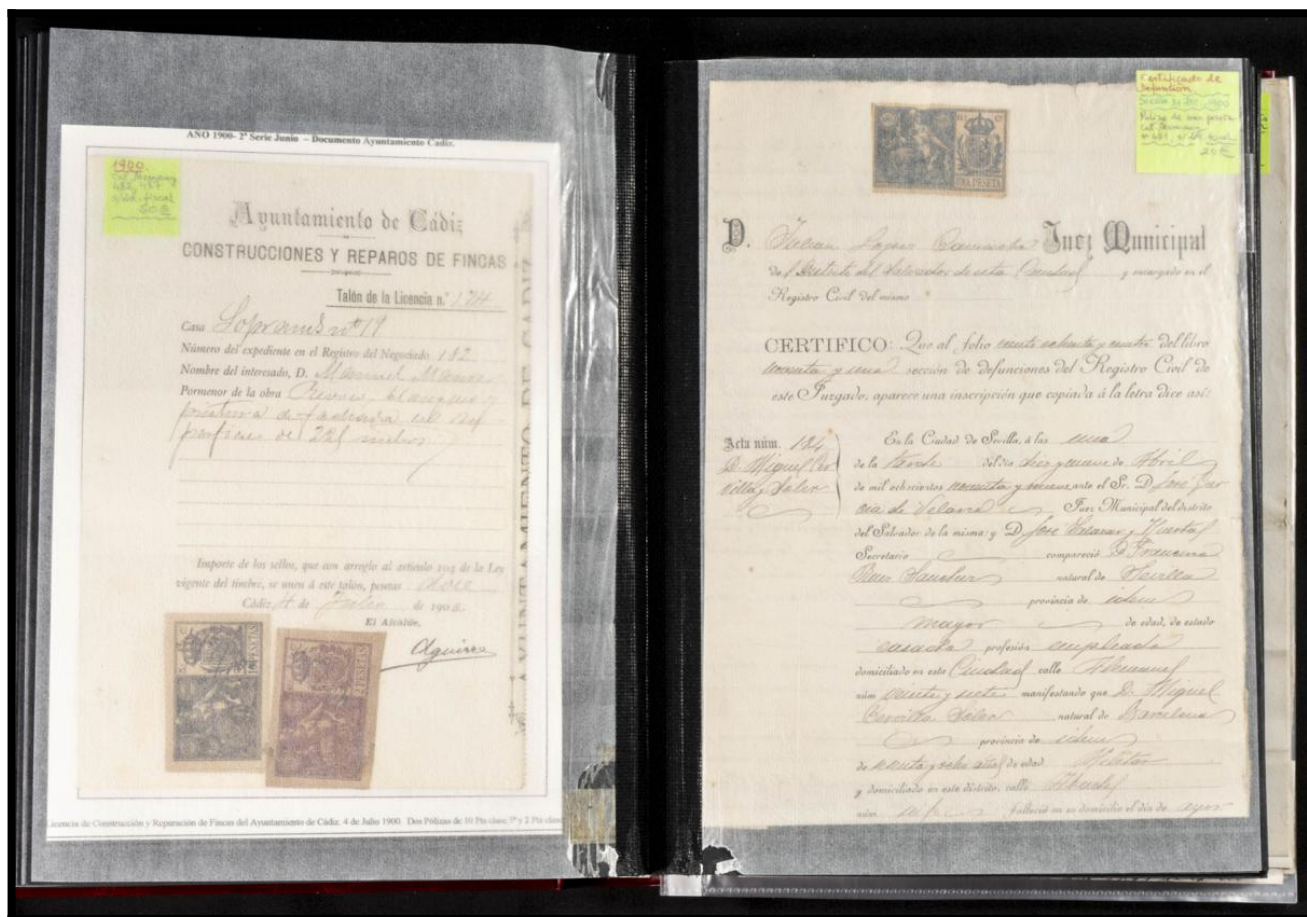 AÑO 1900- 2ª Serie Junio – Documento Ayuntamiento Cadiz.
1900
482, 487
fiscal
Ayuntamiento de Cádiz
CONSTRUCCIONES Y REPAROS DE FINCAS
Talón de la Licencia n.º 174
Casa Sopranis nº 19
Número del expediente en el Registro del Negociado 182
Nombre del interesado, D. Manuel
Pormenor de la obra blanqueo y
pintura de fachada en su
perficie de 221 metros
Importe de los sellos, que con arreglo al artículo 194 de la Ley
vigente del timbre, se unen á este talón, pesetas doce
Cádiz 4 de Julio de 1900
El Alcalde,
Aguirre
AYUNTAMIENTO DE CADIZ
Licencia de Construcción y Reparación de Fincas del Ayuntamiento de Cádiz. 4 de Julio 1900. Dos Pólizas de 10 Pts clase 5ª y 2 Pts clase
Certificado de
Defunción
Sevilla 1900
Poliza de una peseta
20 €
UNA PESETA
D. Julian Lopez Juez Municipal
del Distrito del Salvador de esta Ciudad y encargado en el
Registro Civil del mismo
CERTIFICO: Que al folio ciento ochenta y cuatro del libro
noventa y uno sección de defunciones del Registro Civil de
este Juzgado, aparece una inscripción que copiada á la letra dice así:
Acta núm. 184
D. Miguel Cer
villa y Soler
En la Ciudad de Sevilla, á las una
de la tarde del dia diez y nueve de Abril
de mil ochocientos noventa y nueve ante el Sr. D. José Gar
cia de Juez Municipal del distrito
del Salvador de la misma: y D. José y Huertas
Secretario compareció D. Francisco
Sanchez natural de Sevilla
provincia de idem
mayor de edad, de estado
casado profesión empleado
domiciliado en esta Ciudad calle
núm veinte y siete manifestando que D. Miguel
Cervilla Soler natural de Barcelona
provincia de idem
de y ocho años de edad Militar
y domiciliado en este distrito, calle
núm falleció en su domicilio el dia de ayer